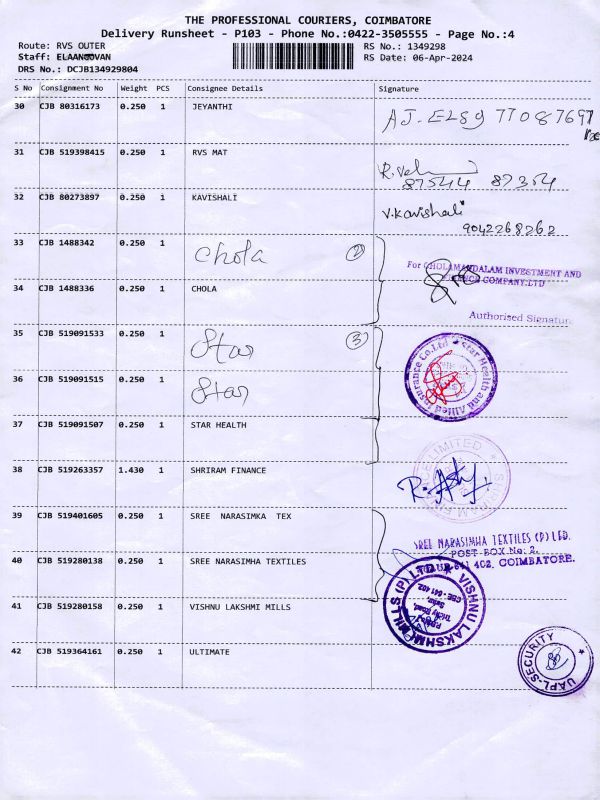 THE PROFESSIONAL COURIERS, COIMBATORE
Delivery Runsheet - P103 - Phone No.:0422-3505555 - Page No.:4
Route: RVS OUTER
RS No.: 1349298
Staff: ELAANGOVAN
RS Date: 06-Apr-2024
DRS No.: DCJB134929804
S No Consignment No Weight PCS Consignee Details Signature
30 CJB 80316173 0.250 1 JEYANTHI
AJ-ELSY 77087697
31 CJB 519398415 0.250 1 RVS MAT
87544 87354
32 CJB 80273897 0.250 1 KAVISHALI
V.Kavishali
9042268262
33 CJB 1488342 0.250 1 Chola 2
For CHOLAMANDALAM INVESTMENT AND
FINANCE COMPANY.LTD
34 CJB 1488336 0.250 1 CHOLA
Authorised Signatur
35 CJB 519091533 0.250 1 Star 3
Star Health and Allied Insurance Co.Ltd
36 CJB 519091515 0.250 1 Star
37 CJB 519091507 0.250 1 STAR HEALTH
38 CJB 519263357 1.430 1 SHRIRAM FINANCE
SHRIRAM FINANCE LIMITED
39 CJB 519401605 0.250 1 SREE NARASIMKA TEX
SREE NARASIMHA TEXTILES (P) LTD.
POST BOX No: 2,
641 402, COIMBATORE.
40 CJB 519280138 0.250 1 SREE NARASIMHA TEXTILES
41 CJB 519280158 0.250 1 VISHNU LAKSHMI MILLS
VISHNU LAKSHMI MILLS (P) LTD
Trichy Road,
CBE - 641 402.
42 CJB 519364161 0.250 1 ULTIMATE
UAPL-SECURITY